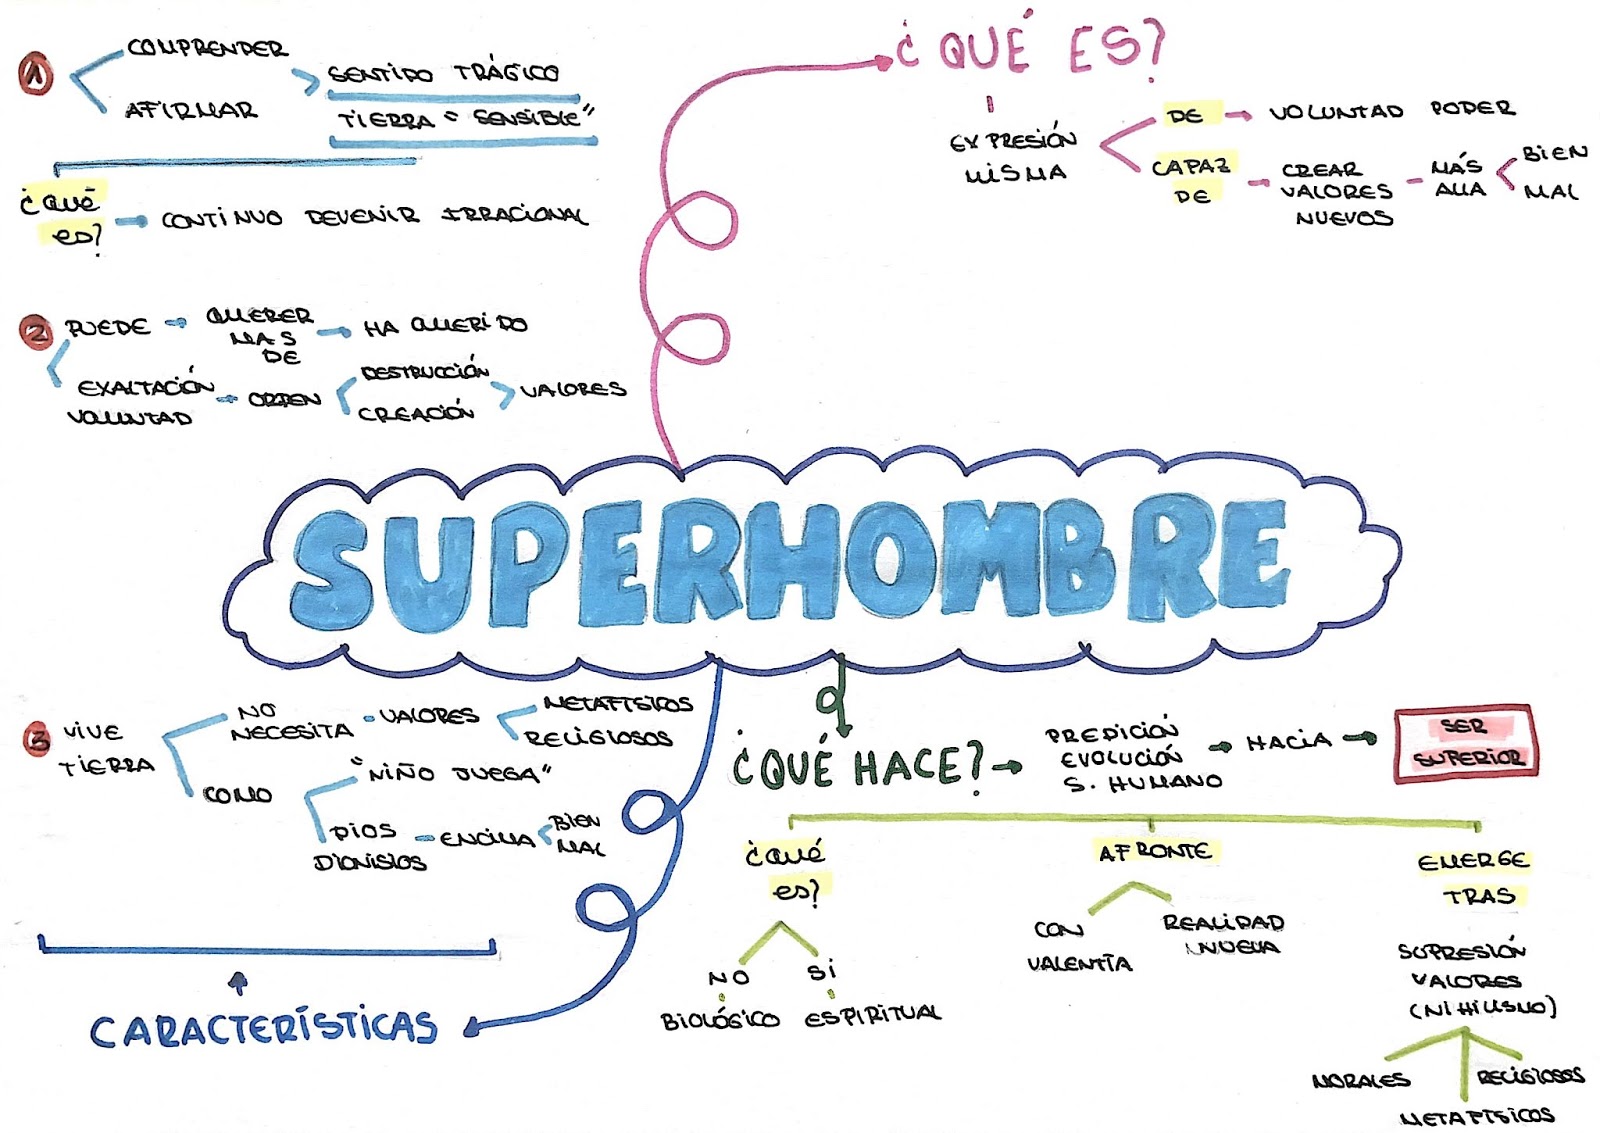 ¿QUÉ ES?
EXPRESIÓN
MISMA
DE → VOLUNTAD PODER
CAPAZ
DE
CREAR
VALORES
NUEVOS
MÁS
ALLA
BIEN
MAL
1
COMPRENDER
AFIRMAR
SENTIDO TRÁGICO
TIERRA "SENSIBLE"
¿Qué
es?
CONTINUO DEVENIR IRRACIONAL
2 PUEDE → QUERER
MAS
DE
→ HA QUERIDO
EXALTACIÓN
VOLUNTAD
ORDEN
DESTRUCCIÓN
CREACIÓN
VALORES
SUPERHOMBRE
3 VIVE
TIERRA
NO
NECESITA
VALORES
METAFÍSICOS
RELIGIOSOS
COMO
"NIÑO JUEGA"
DIOS
DIONISIOS
ENCIMA
BIEN
MAL
CARACTERÍSTICAS
¿QUÉ HACE? →
PREDICIÓN
EVOLUCIÓN
S. HUMANO
→ HACIA →
SER
SUPERIOR
¿Qué
es?
NO
BIOLÓGICO
SI
ESPIRITUAL
AFRONTE
CON
VALENTÍA
REALIDAD
NUEVA
EMERGE
TRAS
SUPRESIÓN
VALORES
(NIHILISMO)
MORALES
METAFÍSICOS
RELIGIOSOS